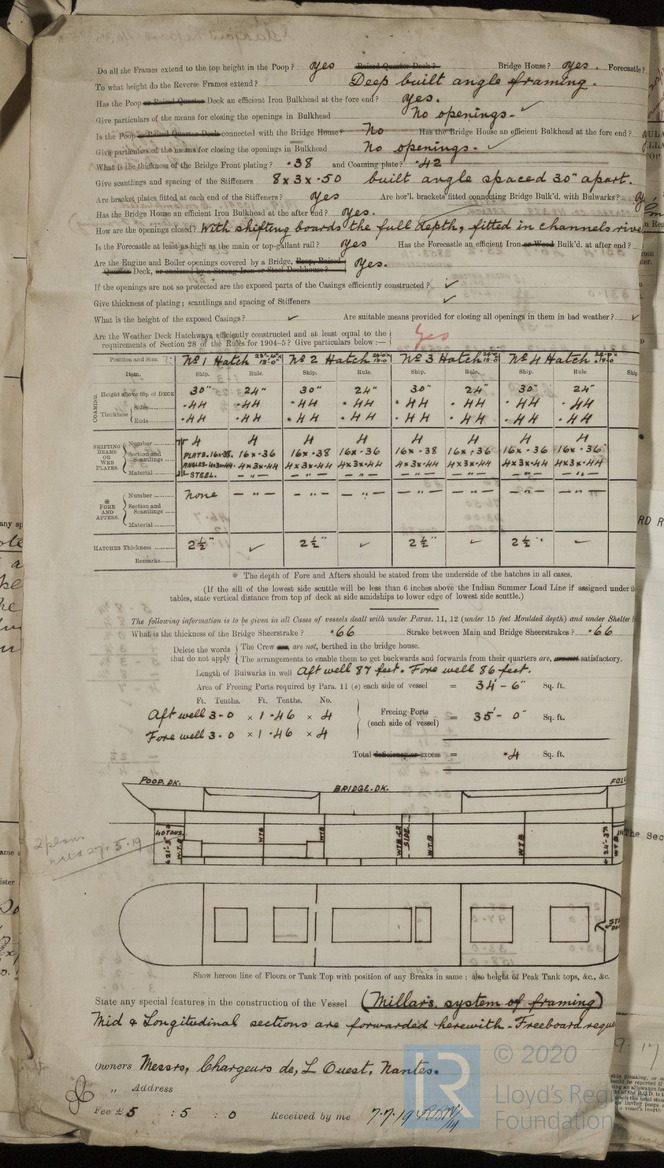 Do all the Frames extend to the top height in the Poop? yes Raised Quarter Deck? Bridge House? yes. Forecastle?
To what height do the Reverse Frames extend? Deep built angle framing.
Has the Poop or Raised Quarter Deck an efficient Iron Bulkhead at the fore end? yes.
Give particulars of the means for closing the openings in Bulkhead No openings. ✓
Is the Poop or Raised Quarter Deck connected with the Bridge House? No Has the Bridge House an efficient Bulkhead at the fore end?
Give particulars of the means for closing the openings in Bulkhead No openings. ✓
What is the thickness of the Bridge Front plating? .38 and Coaming plate? .42
Give scantlings and spacing of the Stiffeners 8 x 3 x .50 built angle spaced 30" apart.
Are bracket plates fitted at each end of the Stiffeners? Yes Are hor'l. brackets fitted connecting Bridge Bulk'd. with Bulwarks?
Has the Bridge House an efficient Iron Bulkhead at the after end? yes.
How are the openings closed? With shifting boards the full depth, fitted in channels rive
Is the Forecastle at least as high as the main or top-gallant rail? yes Has the Forecastle an efficient Iron or Wood Bulk'd. at after end?
Are the Engine and Boiler openings covered by a Bridge, Poop, Raised
Quarter Deck, or enclosed by a Strong Iron or Steel Deckhouse? Yes.
If the openings are not so protected are the exposed parts of the Casings efficiently constructed? ✓
Give thickness of plating; scantlings and spacing of Stiffeners ✓
What is the height of the exposed Casings? ✓ Are suitable means provided for closing all openings in them in bad weather? ✓
Are the Weather Deck Hatchways efficiently constructed and at least equal to the
requirements of Section 28 of the Rules for 1904-5? Give particulars below:— Yes
Position and Size. No 1 Hatch No 2 Hatch No 3 Hatch No 4 Hatch
Item. Ship. Rule. Ship. Rule. Ship. Rule. Ship. Rule. Ship
COAMING Height above top of DECK 30" 24" 30" 24" 30" 24" 30" 24"
Thickness Sides .44 .44 .44 .44 .44 .44 .44 .44
Ends .44 .44 .44 .44 .44 .44 .44 .44
SHIFTING BEAMS OR WEB PLATES. Number 4 4 4 4 4 4 4 4
Section and Scantlings PLATE. 16 x .38. 16 x .36 16 x .38 16 x .36 16 x .38 16 x .36 16 x .36 16 x .36
ANGLES. 4x3x.44. 4x3x.44 4x3x.44 4x3x.44 4x3x.44 4x3x.44 4x3x.44 4x3x.44
Material STEEL. — " — — " — — " — — " — — " — — " — — " —
* FORE AND AFTERS. Number None — " — — " — — " — — " — — " — — " — — " —
Section and Scantlings
Material
HATCHES Thickness 2½" ✓ 2½" ✓ 2½" ✓ 2½" ✓
Remarks
* The depth of Fore and Afters should be stated from the underside of the hatches in all cases.
(If the sill of the lowest side scuttle will be less than 6 inches above the Indian Summer Load Line if assigned under
tables, state vertical distance from top of deck at side amidships to lower edge of lowest side scuttle.)
The following information is to be given in all Cases of vessels dealt with under Paras. 11, 12 (under 15 feet Moulded depth) and under Shelter
What is the thickness of the Bridge Sheerstrake? .66 Strake between Main and Bridge Sheerstrakes? .66
Delete the words that do not apply The Crew are, are not, berthed in the bridge house.
The arrangements to enable them to get backwards and forwards from their quarters are, are not satisfactory.
Length of Bulwarks in well Aft well 87 feet. Fore well 86 feet.
Area of Freeing Ports required by Para. 11 (e) each side of vessel = 34'-6" Sq. ft.
Ft. Tenths. Ft. Tenths. No.
Aft well 3.0 x 1.46 x 4
Fore well 3.0 x 1.46 x 4
Freeing Ports (each side of vessel) = 35'-0" Sq. ft.
Total deficiency or excess = .4 Sq. ft.
POOP. DK. BRIDGE. DK.
40 TONS. W.T.B. W.T.B. W.T.B. W.T.B. W.T.B. W.T.B.
2 plans
27.5.19
Show hereon line of Floors or Tank Top with position of any Breaks in same; also height of Peak Tank tops, &c., &c.
State any special features in the construction of the Vessel (Millar's system of framing)
Mid & Longitudinal sections are forwarded herewith - Freeboard reque
Owners Messrs, Chargeurs de, L Ouest, Nantes.
" Address
Fee £ 5 : 5 : 0 Received by me 7.7.19
© 2020
Lloyd's Reg
Foundation